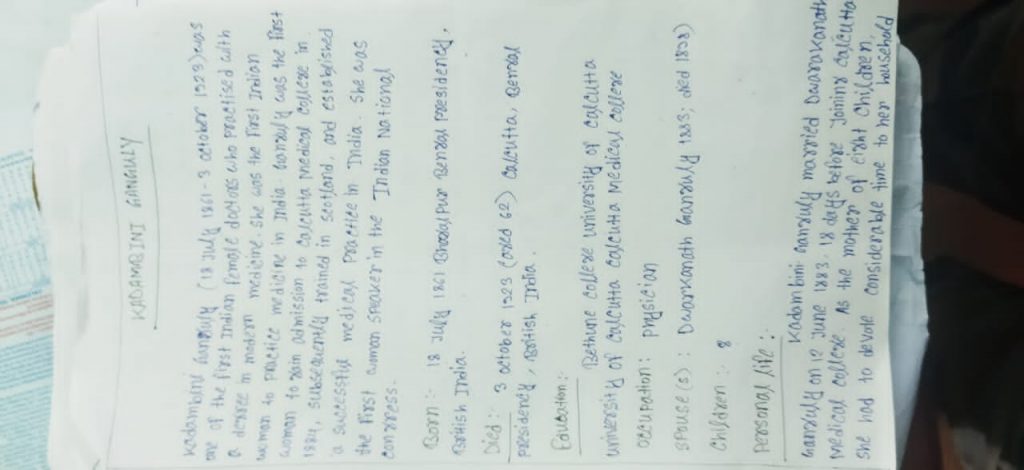 KADAMBINI GANGULY
Kadambini Ganguly (18 July 1861-3 october 1923) was
one of the first Indian female doctors who practised with
a degree in modern medicine. She was the first Indian
woman to practice medicine in India Ganguly was the first
woman to gain admission to calcutta medical college in
1884, subsequently trained in scotland, and established
a successful medical practice in India. She was
the first woman speaker in the Indian National
congress.
Born :- 18 July 1861 Bhagalpur Bengal presidency,
British India.
Died :- 3 october 1923 (aged 62) calcutta, Bengal
presidency, British India.
Education :-
Bethune college university of calcutta
university of calcutta calcutta Medical college
occupation : physician
spouse (s) : Dwarkanath Ganguly 1883; died 1898)
children :- 8
personal life :
Kadambini Ganguly married Dwarakanath
Ganguly on 12 June 1883. 18 days before joining calcutta
Medical college. As the mother of eight children,
she had to devote considerable time to her household